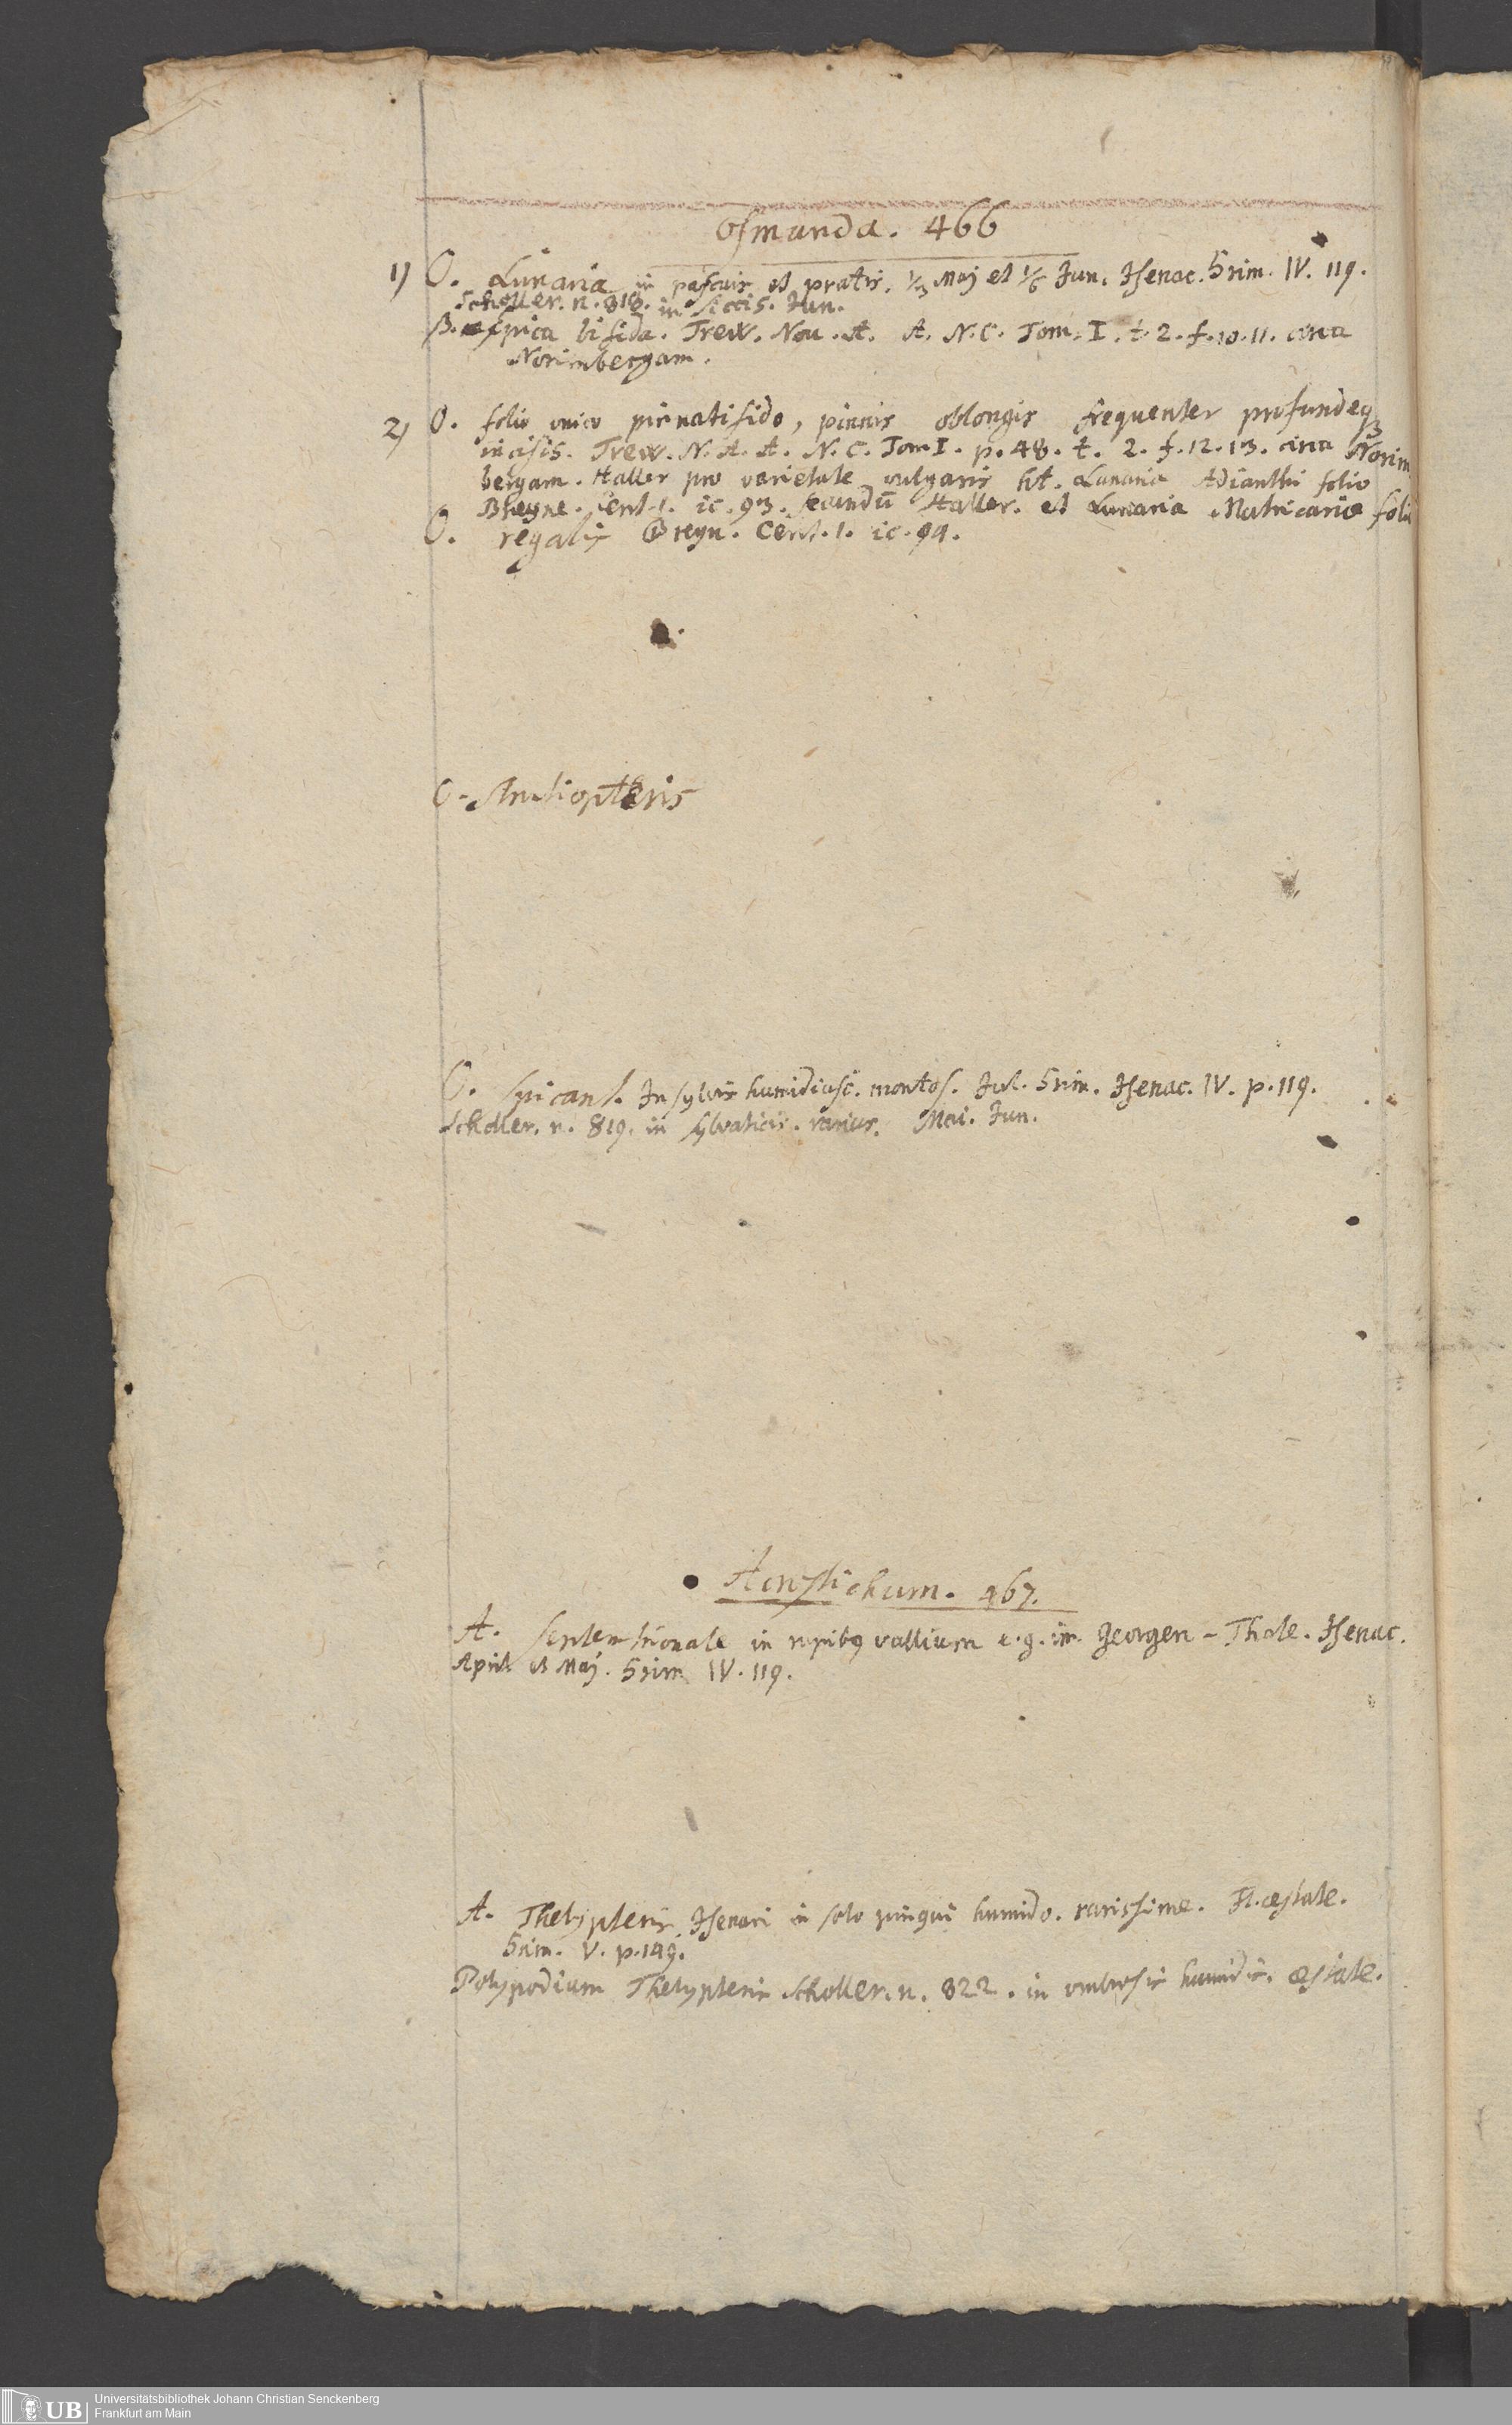 Osmunda. 466
1) O. Lunaria in pascuis et pratis. 1/3 Maj et 1/6 Jun. Isenac. Grim. IV. 119.
Scholler. n. 818. in siccis. Jun.
β. spica bifida. Trew. Nov. A. A. N. C. Tom. I. t. 2. f. 10. 11. circa
Norimbergam.
2) O. folio unico pinnatifido, pinnis oblongis frequenter profundeq3
incisis. Trew. N. A. A. N. C. Tom I. p. 48. t. 2. f. 12. 13. circa Norim
bergam. Haller pro varietate vulgaris ht. Lunaria Adianthi folio
Breyne. Cent. 1. ic. 93. secundū Haller. et Lunaria Matricariæ foli
O. regalis Breyn. Cent. 1. ic. 94.
O. Struthiopteris
O. Spicant. In sylvis humidiusc. montos. Jul. Grim. Isenac. IV. p. 119.
Scholler. n. 819. in sylvaticis. rarius. Mai. Jun.
Acrostichum. 467.
A. septentrionale in rupibq vallium e. g. im Georgen - Thale. Isenac.
April et Maj. Grim IV. 119.
A. Thelypteris Isenaci in solo pingui humido. rarissime. Fl. æstate.
Grim. V. p. 149.
Polypodium Thelypteris Scholler. n. 822. in umbrosis humidis. æstate.
UB Universitätsbibliothek Johann Christian Senckenberg
Frankfurt am Main